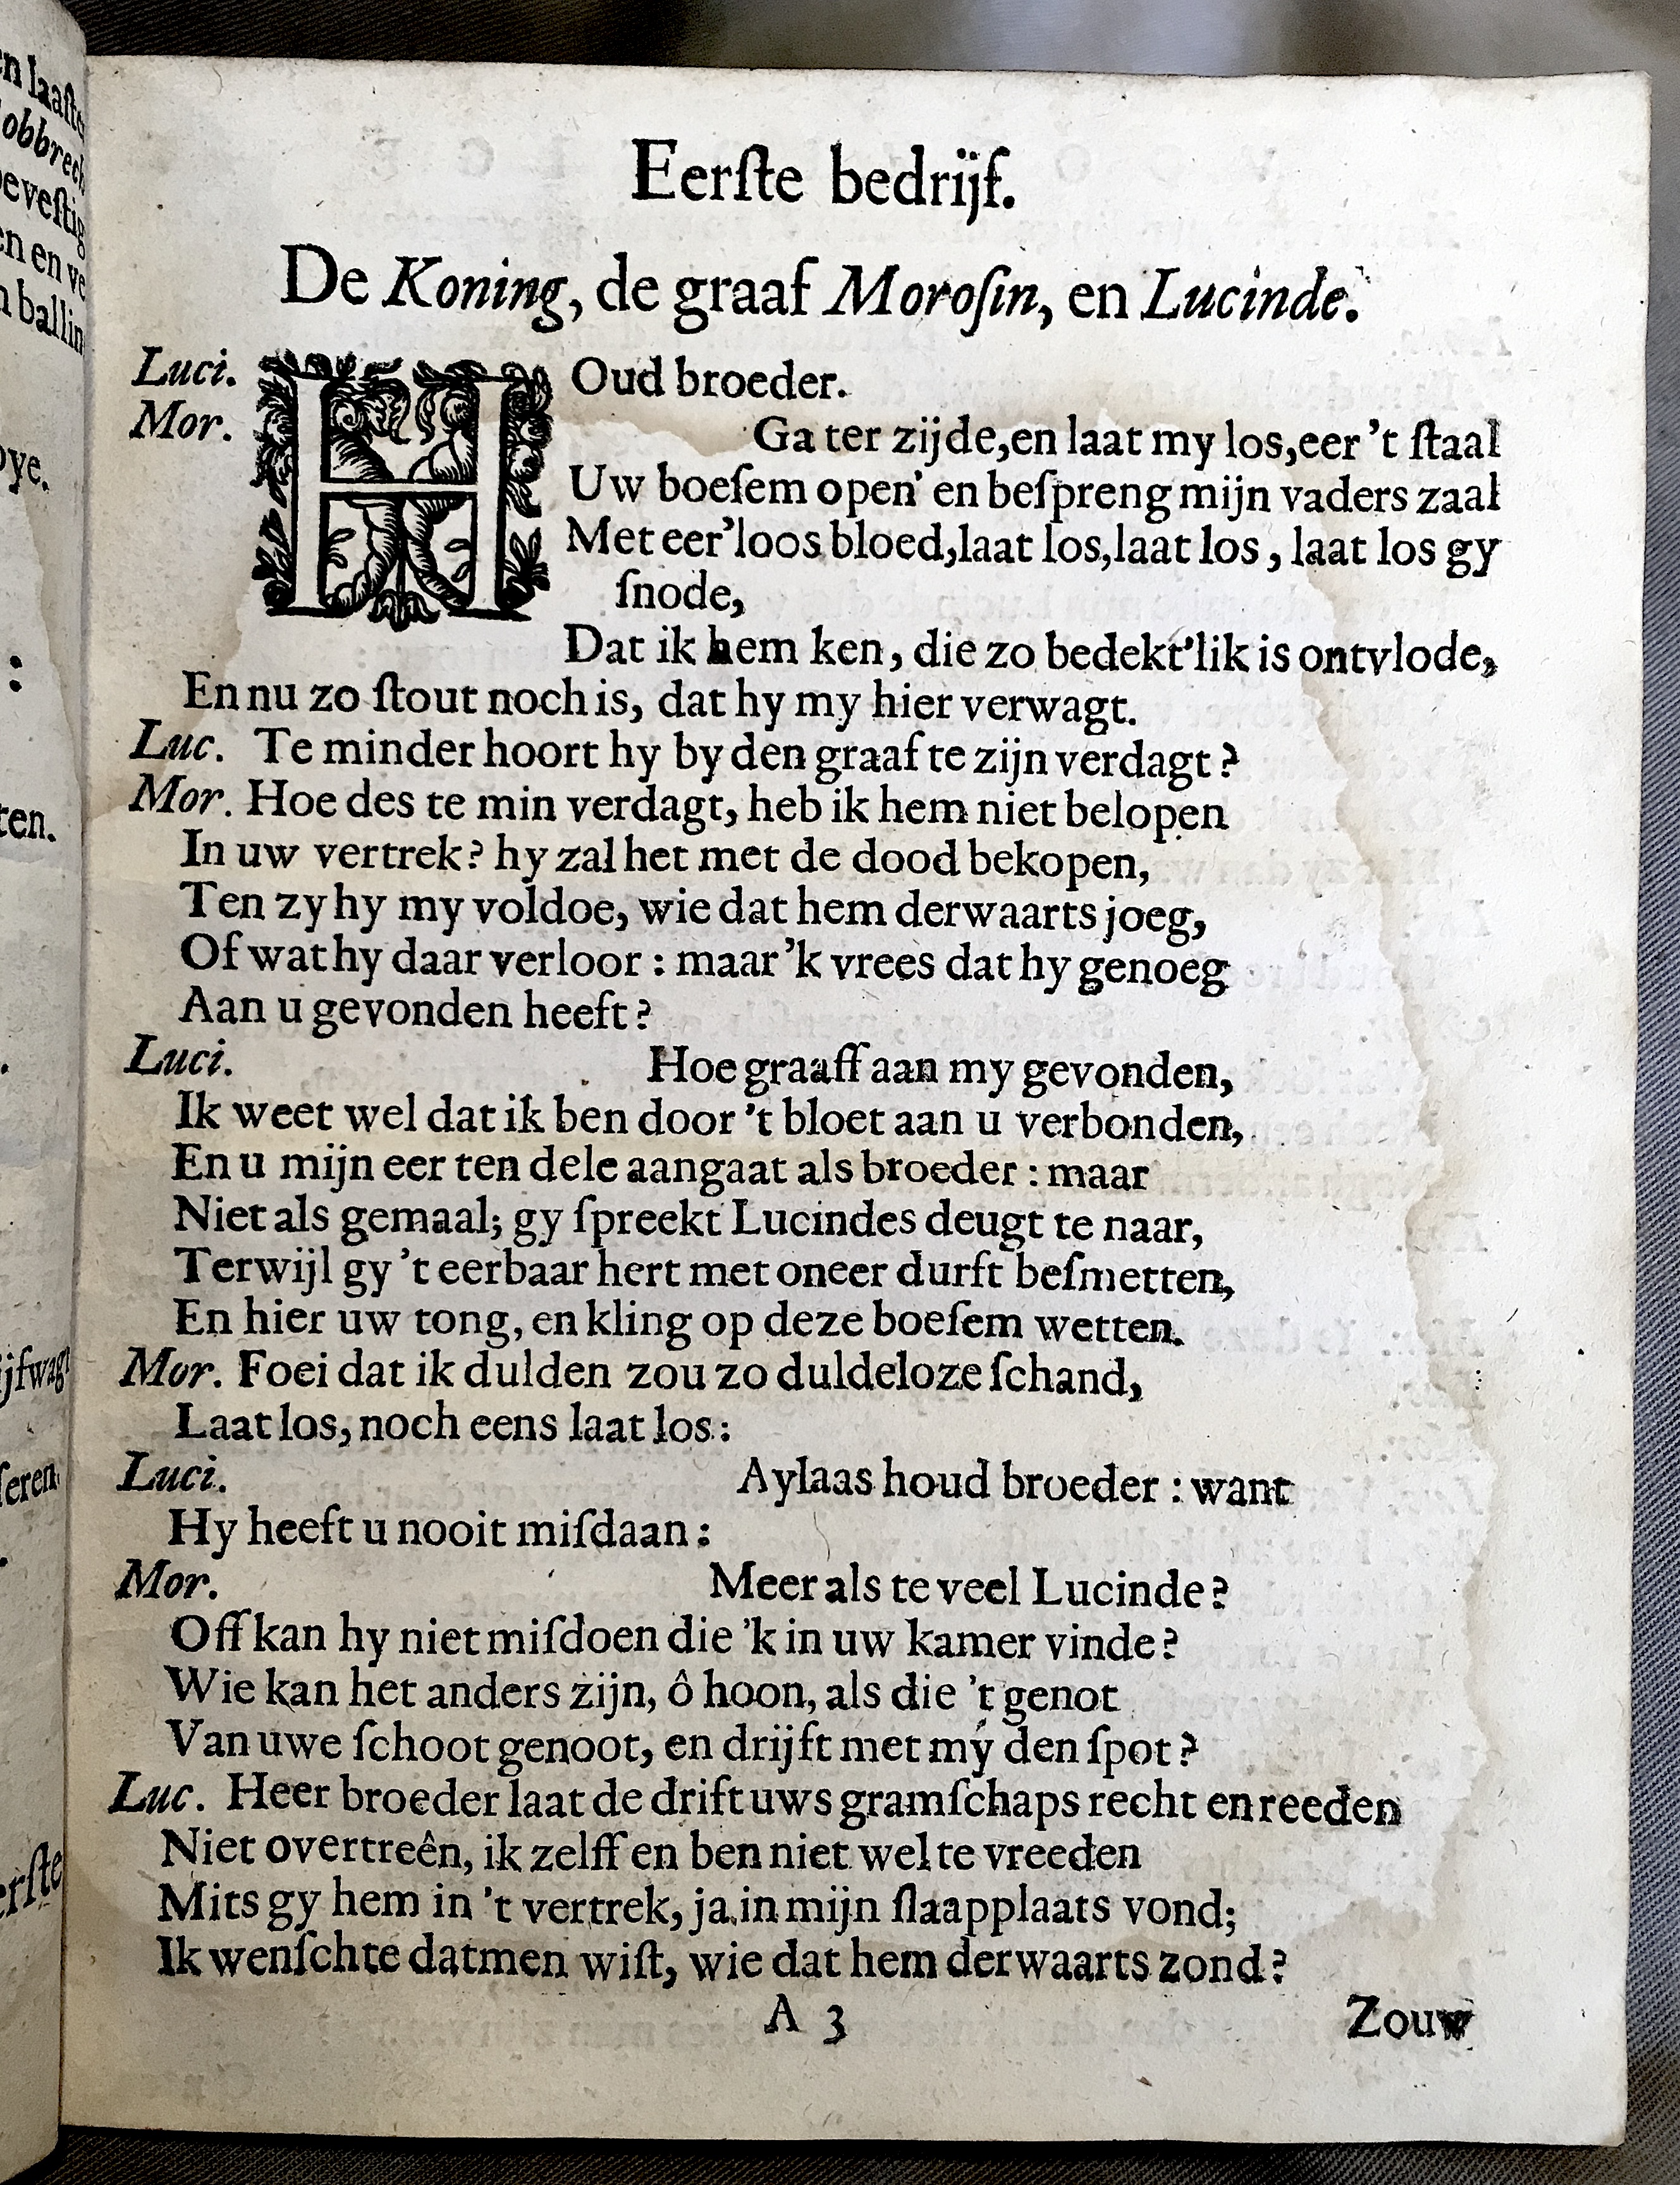 Eerſte bedrijf.
De Koning, de graaf Moroſin, en Lucinde.
Luci. HOud broeder.
Mor. Ga ter zijde, en laat my los, eer 't ſtaal
Uw boeſem open' en beſpreng mijn vaders zaal
Met eer'loos bloed, laat los, laat los, laat los gy
ſnode,
Dat ik hem ken, die zo bedekt'lik is ontvlode,
En nu zo ſtout noch is, dat hy my hier verwagt.
Luc. Te minder hoort hy by den graaf te zijn verdagt?
Mor. Hoe des te min verdagt, heb ik hem niet belopen
In uw vertrek? hy zal het met de dood bekopen,
Ten zy hy my voldoe, wie dat hem derwaarts joeg,
Of wat hy daar verloor: maar 'k vrees dat hy genoeg
Aan u gevonden heeft?
Luci. Hoe graaff aan my gevonden,
Ik weet wel dat ik ben door 't bloet aan u verbonden,
En u mijn eer ten dele aangaat als broeder: maar
Niet als gemaal; gy ſpreekt Lucindes deugt te naar,
Terwijl gy 't eerbaar hert met oneer durft beſmetten,
En hier uw tong, en kling op deze boeſem wetten.
Mor. Foei dat ik dulden zou zo duldeloze ſchand,
Laat los, noch eens laat los:
Luci. Aylaas houd broeder: want
Hy heeft u nooit miſdaan:
Mor. Meer als te veel Lucinde?
Off kan hy niet miſdoen die 'k in uw kamer vinde?
Wie kan het anders zijn, ô hoon, als die 't genot
Van uwe ſchoot genoot, en drijft met my den ſpot?
Luc. Heer broeder laat de drift uws gramſchaps recht en reeden
Niet overtreên, ik zelff en ben niet wel te vreeden
Mits gy hem in 't vertrek, ja in mijn ſlaapplaats vond;
Ik wenſchte datmen wiſt, wie dat hem derwaarts zond?
A 3 Zouw